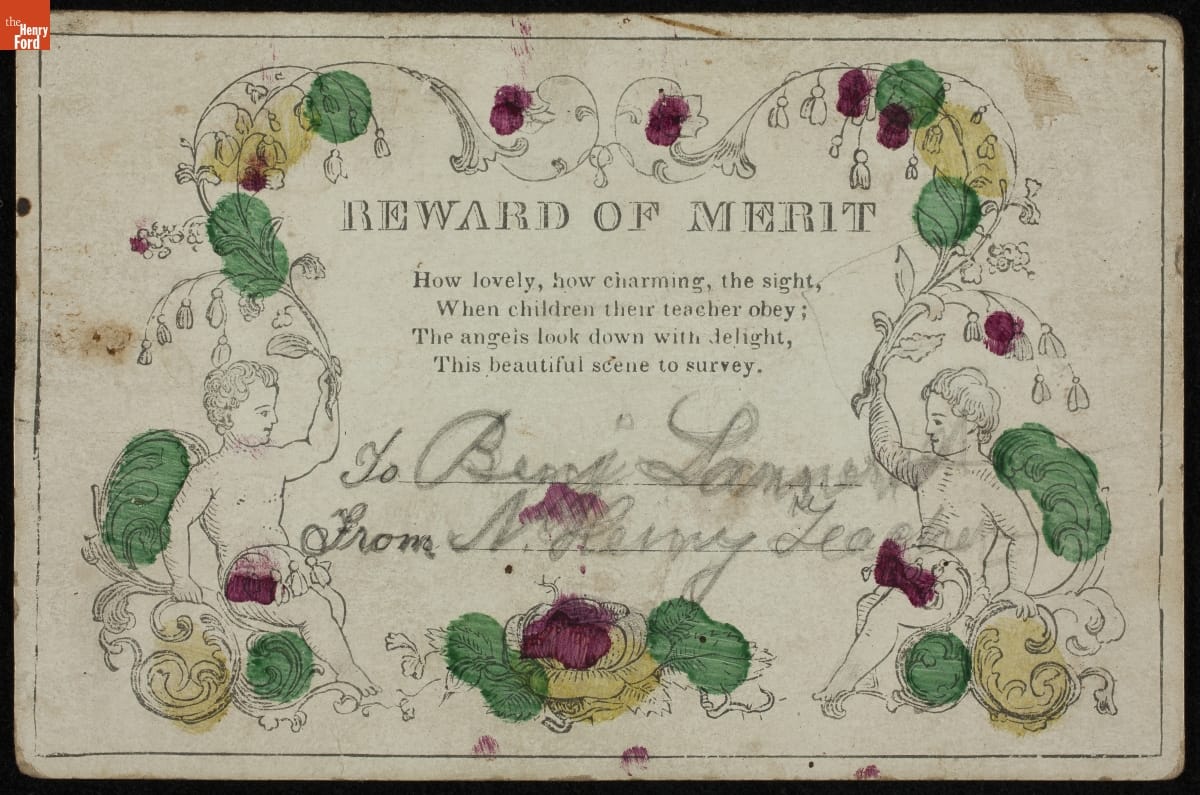 the
Henry
Ford
REWARD OF MERIT
How lovely, how charming, the sight,
When children their teacher obey;
The angels look down with delight,
This beautiful scene to survey.
To Benj
From N. Teacher